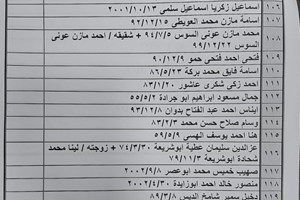 ١٠٦ اسماعيل زكريا اسماعيل سلمي ٢٠٠١/١٠/١٣
١٠٧ اسامة مازن محمد العويطي ٩٢/١٢/١٥
١٠٨ محمد مازن عوني السوس ٩٤/٧/٥ + شقيقه / احمد مازن عوني
السوس ٩٩/١٢/٢٢
١٠٩ فتحي احمد فتحي حمو ٩٠/١٢/٩
١١٠ اسامة فايق محمد بركة ٨٦/٥/٢٣
١١١ احمد زكي شكري عاشور ٨٣/١/٢٠
١١٢ جمال مسعود ابراهيم ابو جرادة ٥٥/٥/٢
١١٣ ايناس احمد عبد الفتاح بدوان ٩٣/١١/٨
١١٤ وسام صلاح حسن محمد ٨٣/٢/٣
١١٥ هنا احمد يوسف الهسي ٥٩/٥/٩
١١٦ عزالدين سليمان عطية ابوشريعة ٧٤/٣/٣٠ + زوجته / لينا محمد
شحادة ابوشريعة ٧٩/١١/٣
١١٧ صهيب خميس محمد ابوعصر ٢٠٠٢/٩/٨
١١٨ منصور خالد احمد ابوزايدة ٢٠٠٢/٤/٣٠
١١٩ دخيل سمير شامخ الدبس ٨٩/٣/٨